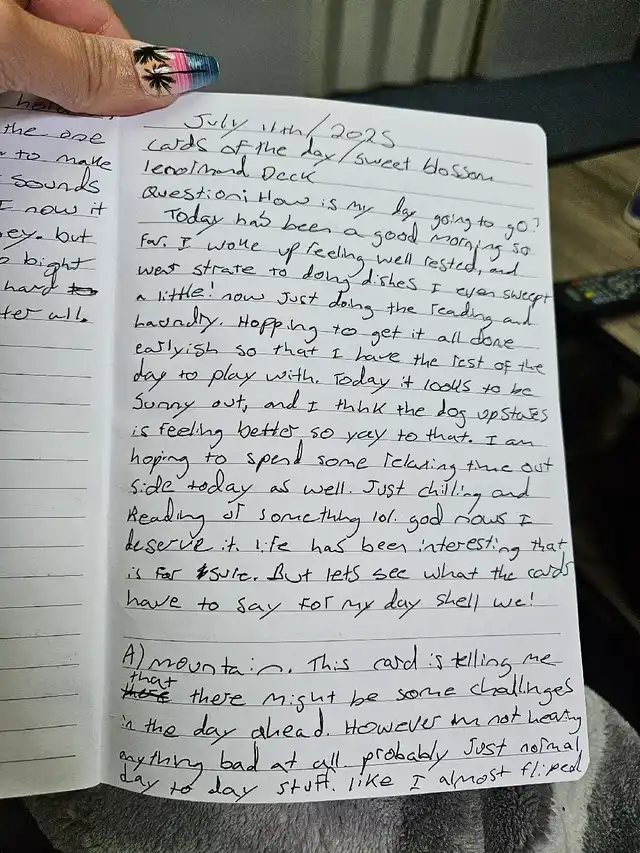 the one
to make
sounds
I now it
ey. but
bight
hard to
ter all.
July 11th/2025
cards of the day/sweet blossom
lenormand Deck
Question: How is my day going to go?
Today has been a good morning so
far. I woke up feeling well rested, and
went strate to doing dishes I even swept
a little! now just doing the reading and
laundry. Hopping to get it all done
earlyish so that I have the rest of the
day to play with. Today it looks to be
sunny out, and I think the dog upstares
is feeling better so yay to that. I am
hoping to spend some relaxing time out
side today as well. Just chilling and
Reading or something lol. god nows I
deserve it. life has been interesting that
is for sure. But lets see what the cards
have to say for my day shell we!
A) mountain. This card is telling me
that
there there might be some challinges
in the day ahead. However im not hearing
anything bad at all. probably just normal
day to day stuff. like I almost fliped